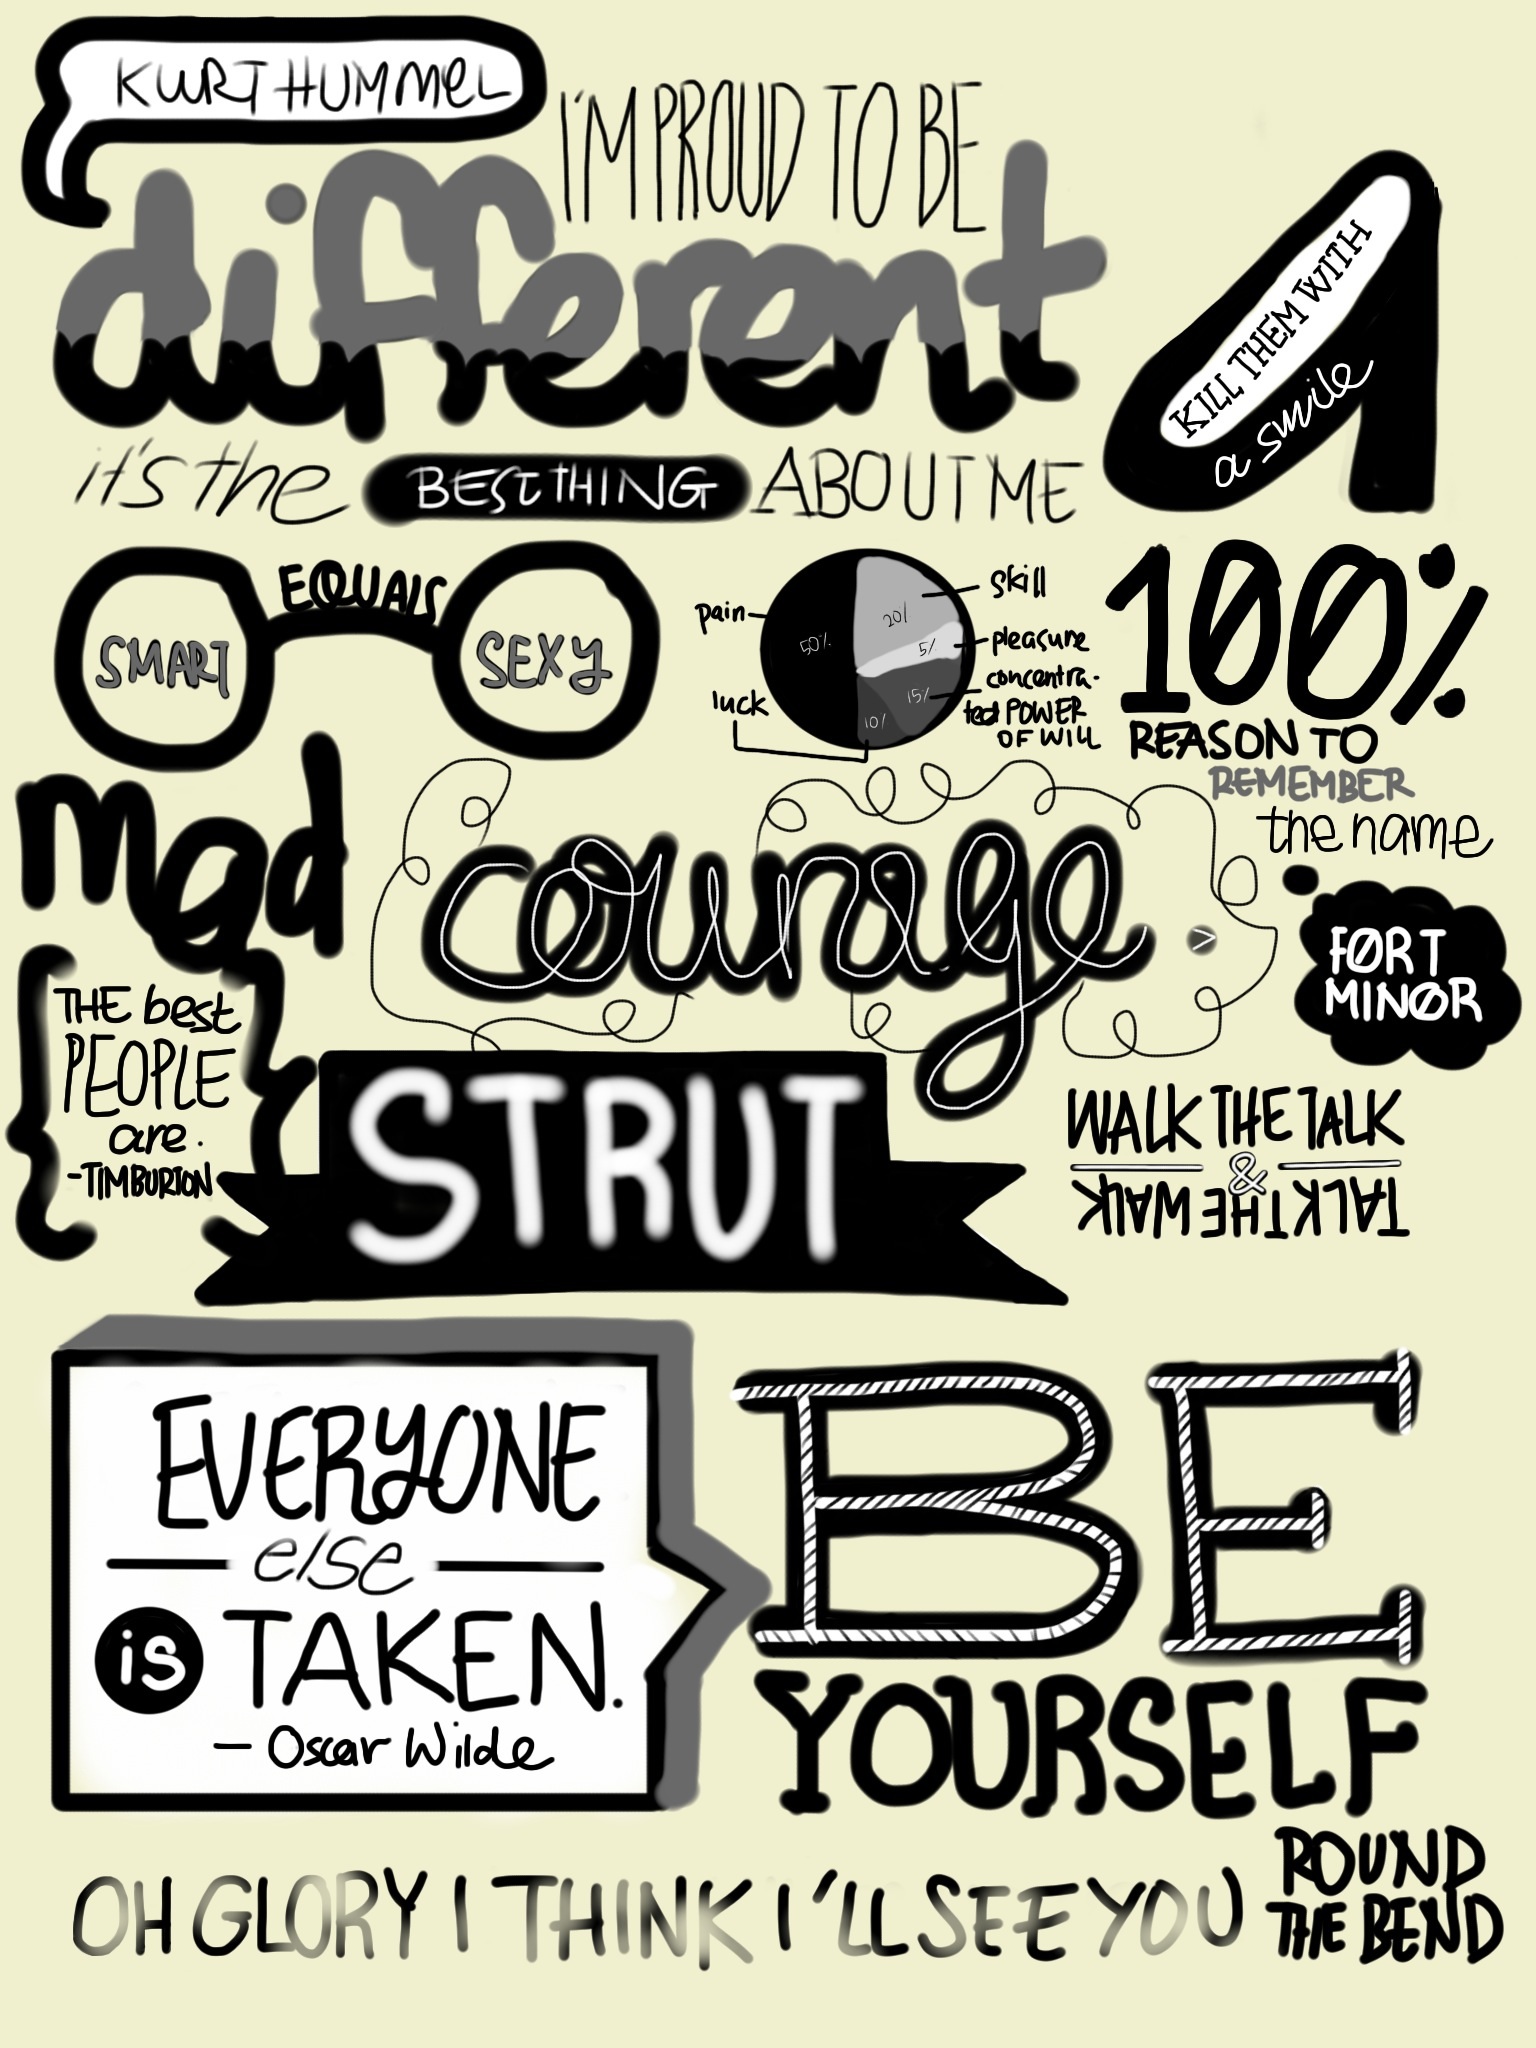 KURT HUMMEL
I'M PROUD TO BE
different
it's the BEST THING ABOUT ME
KILL THEM WITH
a smile
SMART EQUALS SEXY
pain
50%
skill
20%
pleasure
5%
concentra-
ted POWER
OF WILL
15%
luck
10%
100%
REASON TO
REMEMBER
the name
FORT
MINOR
mad
THE best
PEOPLE
are.
-TIM BURTON
courage
>
STRUT
WALK THE TALK
&
TALK THE WALK
EVERYONE
else
is TAKEN.
- Oscar Wilde
BE
YOURSELF
OH GLORY I THINK I'LL SEE YOU
ROUND
THE BEND